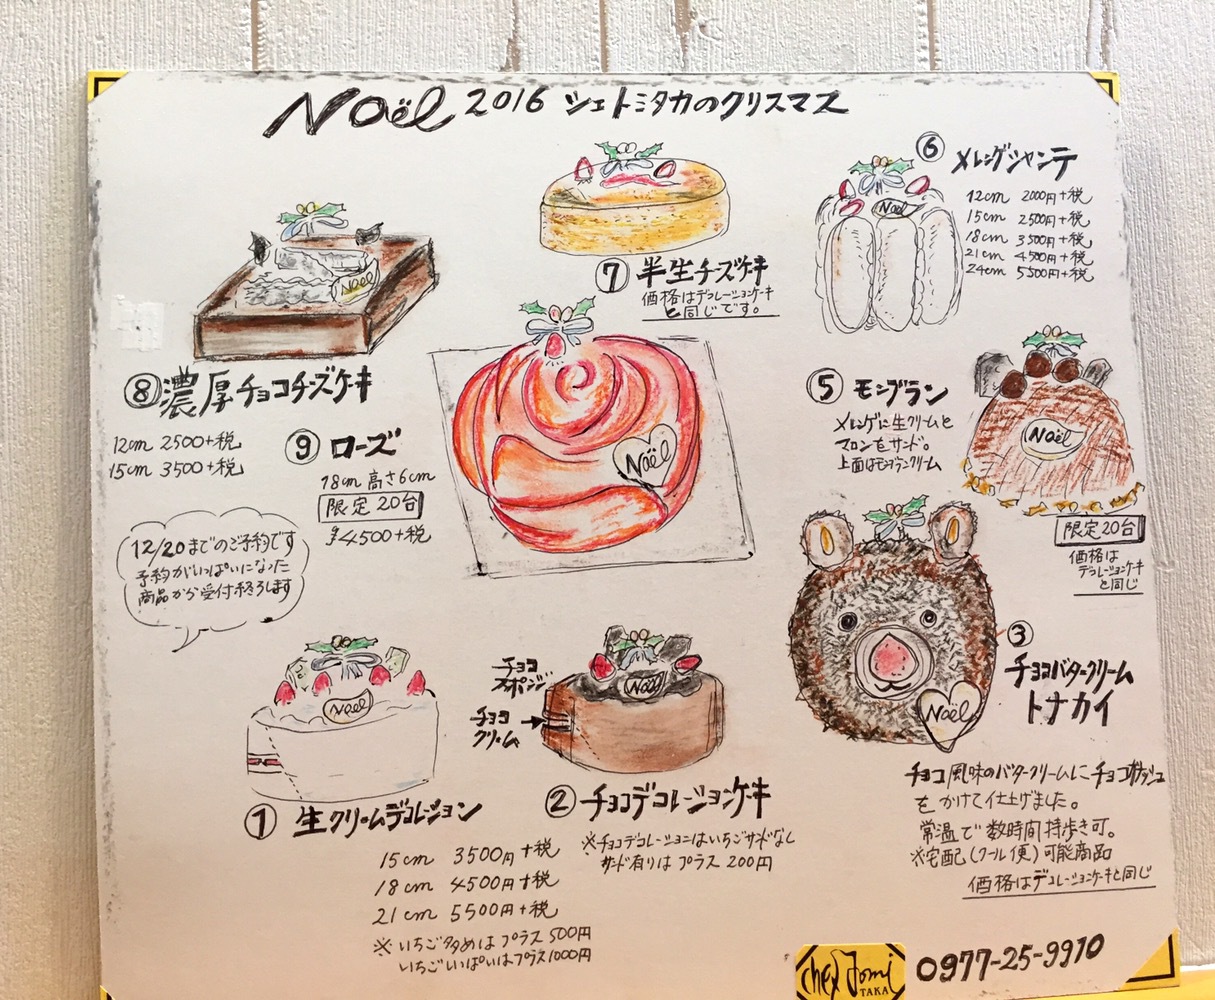 Noël 2016 シェトミタカのクリスマス
⑥ メレンゲシャンテ
12cm 2000円+税
15cm 2500円+税
18cm 3500円+税
21cm 4500円+税
24cm 5500円+税
Noël
⑦ 半生チーズケーキ
価格はデコレーションケーキ
と同じです。
Noël
⑧ 濃厚チョコチーズケーキ
12cm 2500+税
15cm 3500+税
⑨ ローズ
18cm 高さ6cm
限定20台
¥4,500+税
Noël
⑤ モンブラン
メレンゲに生クリームと
マロンをサンド。
上面はモンブランクリーム
Noël
限定20台
価格は
デコレーションケーキ
と同じ
12/20までのご予約です
予約がいっぱいになった
商品から受付終ろします
Noël
① 生クリームデコレーション
15cm 3500円+税
18cm 4500円+税
21cm 5500円+税
※いちご多めはプラス500円
いちごいっぱいはプラス1000円
チョコ
スポンジ
チョコ
クリーム
Noël
② チョコデコレーションケーキ
※チョコデコレーションはいちごサンドなし
サンド有りはプラス200円
Noël
③
チョコバタークリーム
トナカイ
チョコ風味のバタークリームにチョコガナッシュ
をかけて仕上げました。
常温で数時間持歩き可。
※宅配(クール便)可能商品
価格はデコレーションケーキと同じ
chez Tomi
TAKA
0977-25-9910